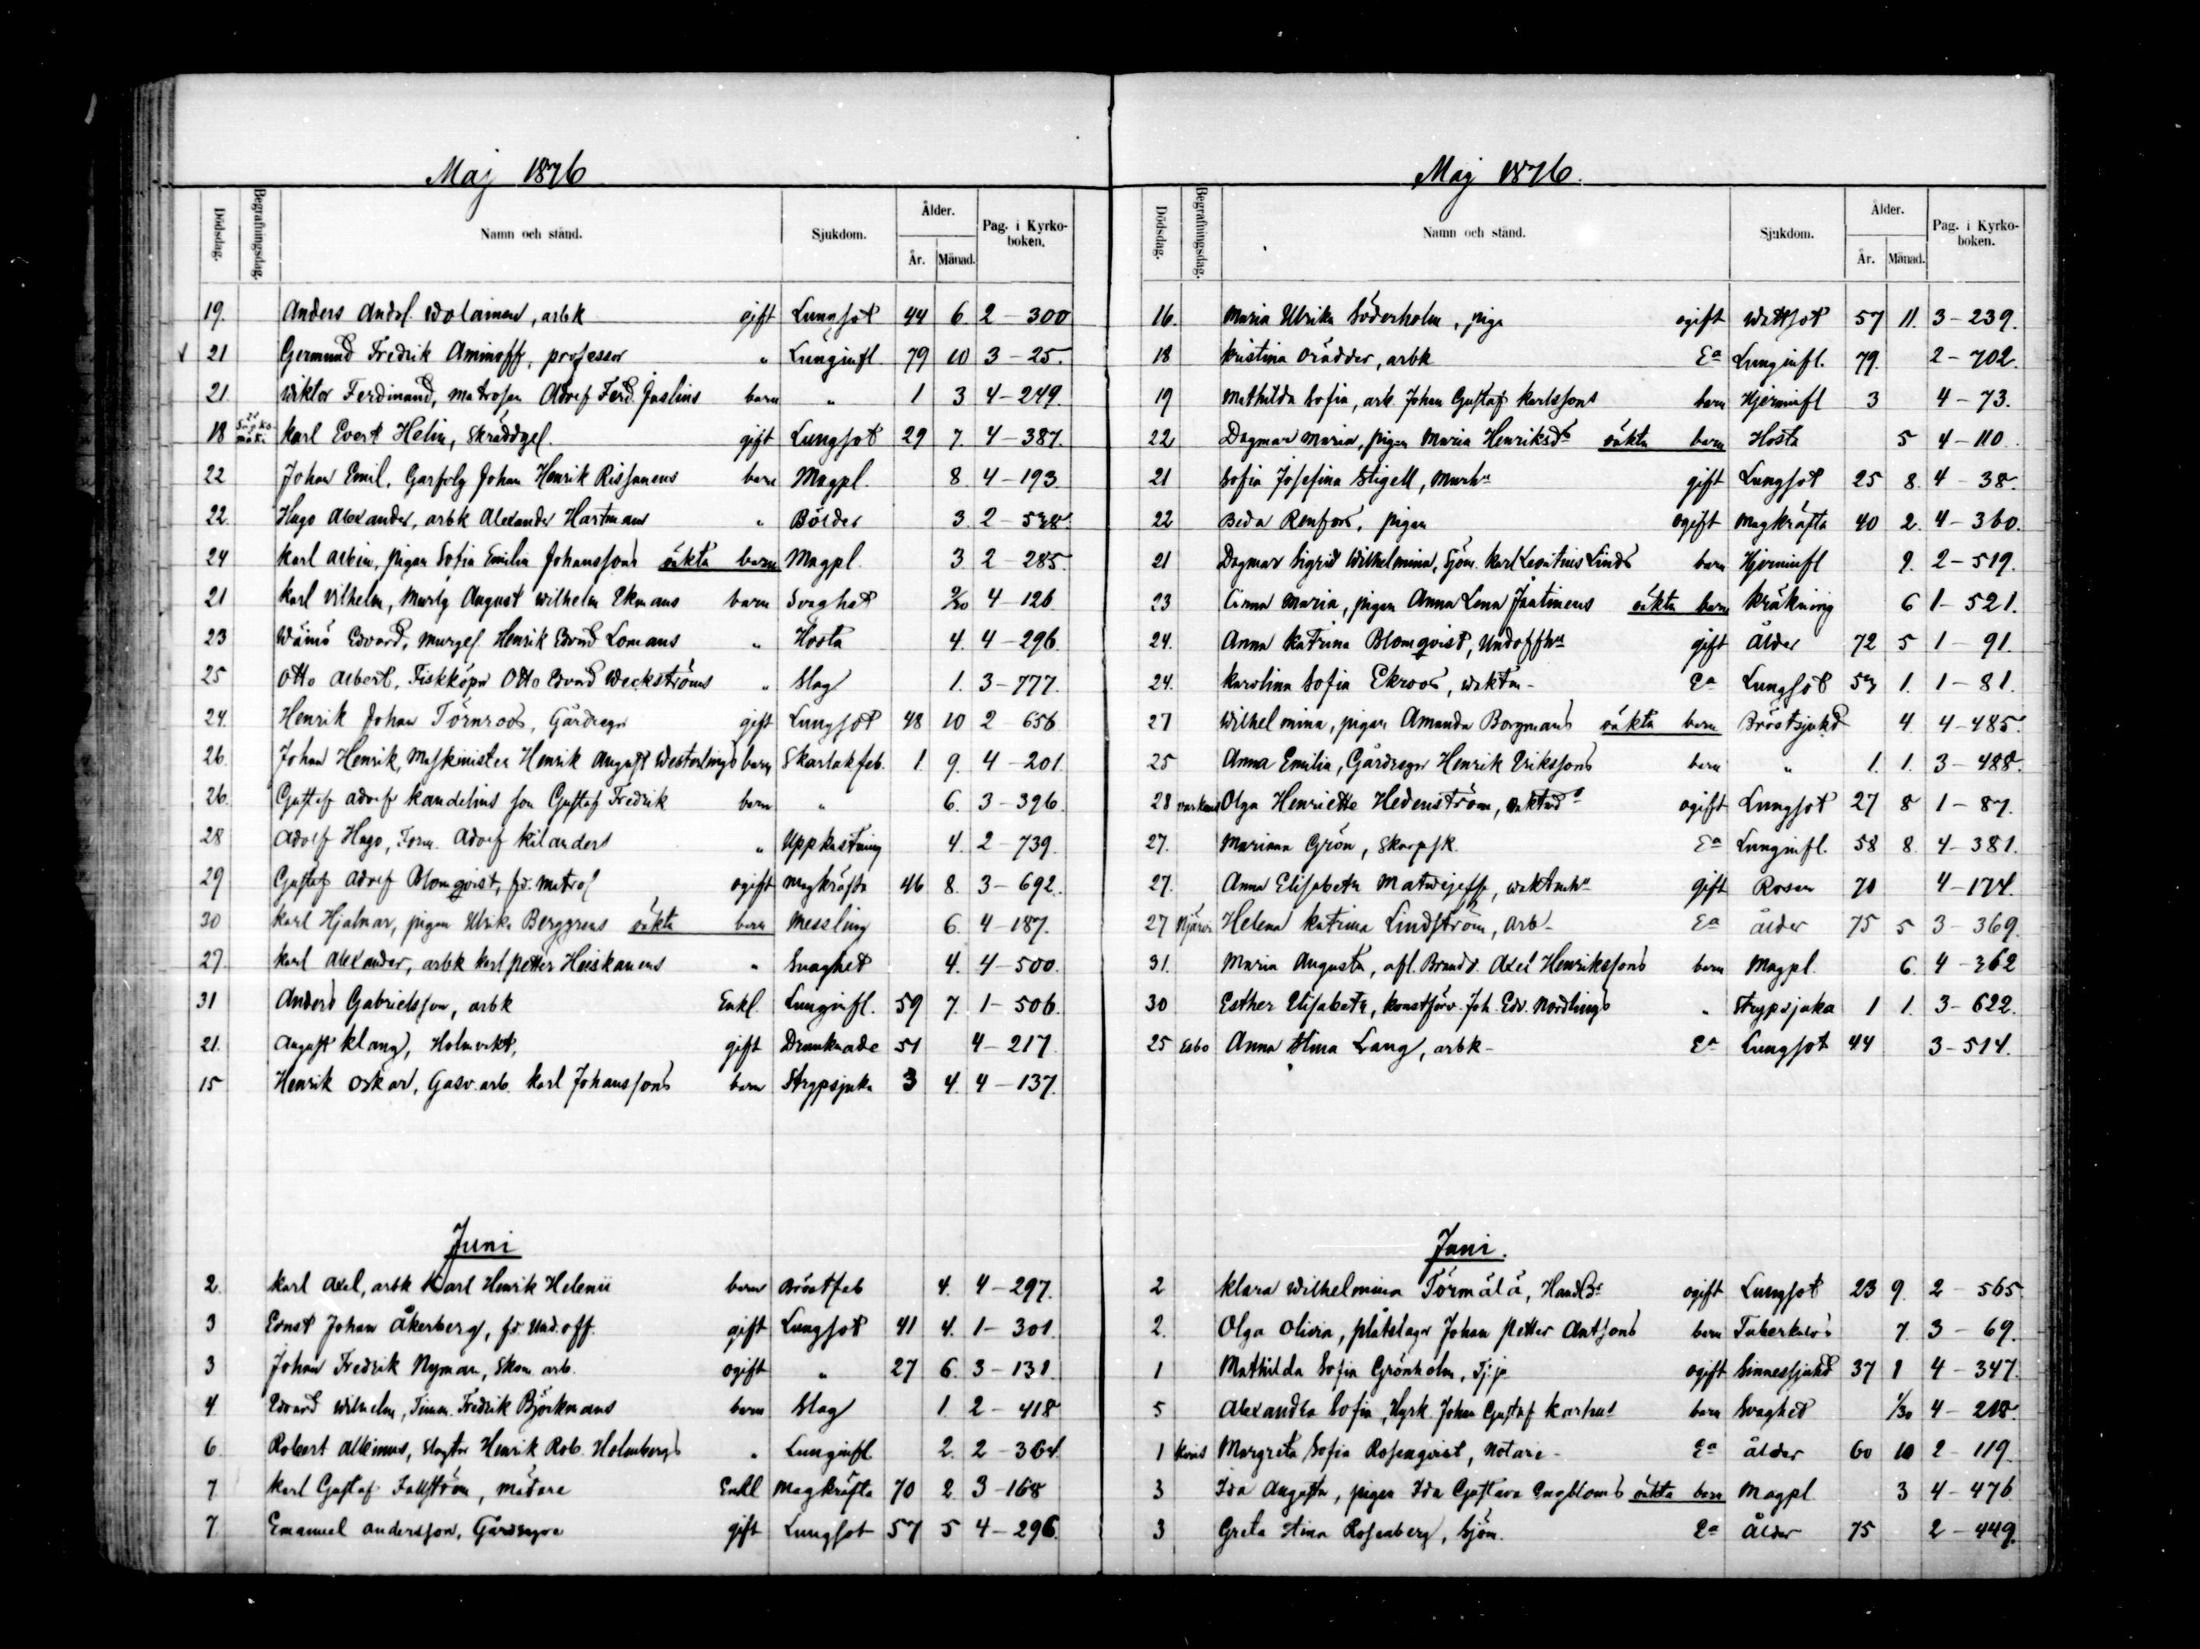 Maj 1876
Dödsdag. Begrafningsdag. Namn och stånd. Sjukdom. Ålder. År. Månad. Pag. i Kyrkoboken.
19. Anders Andsf. Wolainen, arbk gift Lungsot 44 6. 2 – 300
21 Germund Fredrik Aminoff, professor " Lunginfl. 79 10 3 – 25.
21. Wiktor Ferdinand, matrosen Adolf Ferd. Jaslins barn " 1 3 4 – 249
18 Karl Evert Helin, Skräddgel. gift Lungsot 29 7. 4 – 387.
22 Johan Emil, Garfvlg Johan Henrik Rissanens barn Magpl. 8. 4 – 193.
22. Hugo Alexander, arbk Alexander Hartmans " Bölder 3. 2 – 538.
24 Karl Albin, pigan Sofia Emilia Johanssons oäkta barn Magpl. 3. 2 – 285.
21 Karl Vilhelm, Murlg August Wilhelm Ekmans barn Svaghet 2/30 4 – 126
23 Wäinö Edvard, Murges. Henrik Edvard Lomans " Hosta 4. 4 – 296
25 Otto Albert, Fiskköpr Otto Edvard Weckströms " Slag 1. 3 – 777.
24. Henrik Johan Törnroos, Gårdsegr gift Lungsot 48 10 2 – 656
26. Johan Henrik, Maskinisten Henrik August Westerlings barn Skarlakfeb. 1. 9. 4 – 201.
26. Gustaf Adolf Kandelins son Gustaf Fredrik barn " 6. 3 – 396.
28 Adolf Hugo, Form. Adolf Kilanders " Uppkastning 4. 2 – 739.
29 Gustaf Adolf Blomqvist, fd. Matros ogift Magkräfta 46 8. 3 – 692.
30 Karl Hjalmar, pigan Ulrika Berggrens oäkta barn Messling 6. 4 – 187.
27. Karl Alexander, arbk Karl Petter Heiskanens " Svaghet 4. 4 – 500.
31 Anders Gabrielsson, arbk Enkl. Lunginfl. 59 7. 1 – 506.
21. August Klang, Holmvakt, gift Drunknade 51 4 – 217
15 Henrik Oskar, Gasv. arb. Karl Johanssons barn Strypsjuka 3 4. 4 – 137.
Juni
2. Karl Axel, arbk Karl Henrik Helenii barn Bröstfeb 4. 4 – 297.
3 Ernst Johan Åkerberg, fd. Und.off. gift Lungsot 41 4. 1 – 301.
3 Johan Fredrik Nyman, Skom. arb. ogift " 27 6. 3 – 131.
4. Edvard Wilhelm, Timm. Fredrik Björkmans barn Slag 1. 2 – 418
6 Robert Alkimus, Slagtar Henrik Rob. Holmbergs " Lunginfl. 2. 2 – 364.
7 Karl Gustaf Fallström, mätare Enkl Magkräfta 70 2. 3 – 168
7. Emanuel Andersson, Gårdsegare gift Lungsot 57 5 4 – 296.
Maj 1876.
Dödsdag. Begrafningsdag. Namn och stånd. Sjukdom. Ålder. År. Månad. Pag. i Kyrkoboken.
16. Maria Ulrika Söderholm, piga ogift Wattsot 57 11. 3 – 239.
18 Kristina Orädder, arbk Ea Lunginfl. 79. 2 – 702.
19 Mathilda Sofia, arb. Johan Gustaf Karlssons barn Hjerninfl 3 4 – 73.
22 Dagmar Maria, pigan Maria Henriksdr oäkta barn Hosta 5 4 – 110.
21 Sofia Josefina Stigell, Murhu gift Lungsot 25 8. 4 – 38.
22 Beda Renfors, pigan ogift Magkräfta 40 2. 4 – 360.
21 Dagmar Sigrid Wilhelmina, Sjöm. Karl Leontius Linds barn Hjerninfl 9. 2 – 519.
23 Anna Maria, pigan Anna Lena Jäätinens oäkta barn Kräkning 6 1 – 521.
24. Anna Katrina Blomqvist, Undoffhu gift Ålder 72 5 1 – 91.
24. Karolina Sofia Ekroos, waktm- Ea Lungsot 1. 1 – 81.
27 Wilhelmina, pigan Amanda Borgmans oäkta barn Bröstsjukd 4. 4 – 485.
25 Anna Emilia, Gårdsegr Henrik Erikssons barn " 1. 1. 3 – 488.
28 Olga Henriette Hedenström, ogift Lungsot 27 8 1 – 87.
27. Mariana Grön, Skarpsk. Ea Lunginfl. 58 8. 4 – 381.
27. Anna Elisabeth Matwejeff, waktmhu gift Rosen 70 4 – 174.
27 Helena Katrina Lindström, arb- Ea Ålder 75 5 3 – 369.
31. Maria Augusta, afl. Brandv. Axel Henrikssons barn Magpl. 6. 4 – 362
30 Esther Elisabeth, Konstförv. Joh. Edv. Nordlings " Strypsjuka 1 1. 3 – 622.
25 Esbo Anna Stina Lang, arbk- Ea Lungsot 44 3 – 514.
Juni.
2 Klara Wilhelmina Törmälä, ogift Lungsot 23 9. 2 – 565
2. Olga Olivia, plåtslagr Johan Petter Antsons barn Tuberkulos 7. 3 – 69.
1 Mathilda Sofia Grönholm, Tj.p. ogift Sinnessjukd 37 1 4 – 347.
5 Alexandra Sofia, Hyrk. Johan Gustaf Karhus barn Svaghet 1/30 4 – 218.
1 Margreta Sofia Rosenqvist, Notarie- Ea Ålder 60 10 2 – 119.
3 Ida Augusta, pigan Ida Gustava Engbloms oäkta barn Magpl. 3 4 – 476
3 Greta Stina Rosenberg, Sjöm. Ea Ålder 75 2 – 449.